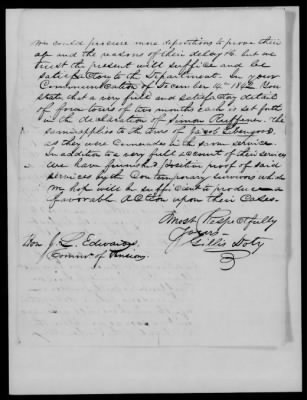 We could procure more depositions to prove their
and the reasons of their delay &c but we
trust the present will suffice and be
satisfactory to the Department. In your
Communication of December 14th 1842 You
state that a very full and satisfactory detail
of four tours of two months each is set forth
in the declaration of Simon
The
same applies to the Tours of Jacob
as they were Comrades in the same service.
In addition to a very full account of their services
we have furnished Positive proof of said
services by the Contemporary survivors which
we hope will be sufficient to produce a
favorable Action upon their Cases.
Most Respectfully
Yours
Gillis Doty
Hon J. L. Edwards
Commr of Pensions